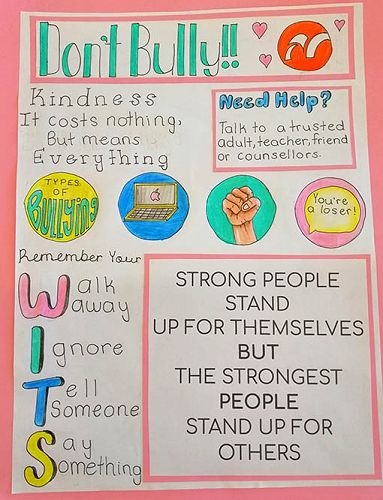 Don't Bully!!
Kindness
It costs nothing,
But means
Everything
Need Help?
Talk to a trusted
adult, teacher, friend
or counsellors.
TYPES
OF
Bullying
You're
a loser!
Remember Your
Walk
away
Ignore
Tell
Someone
Say
Something
STRONG PEOPLE
STAND
UP FOR THEMSELVES
BUT
THE STRONGEST
PEOPLE
STAND UP FOR
OTHERS